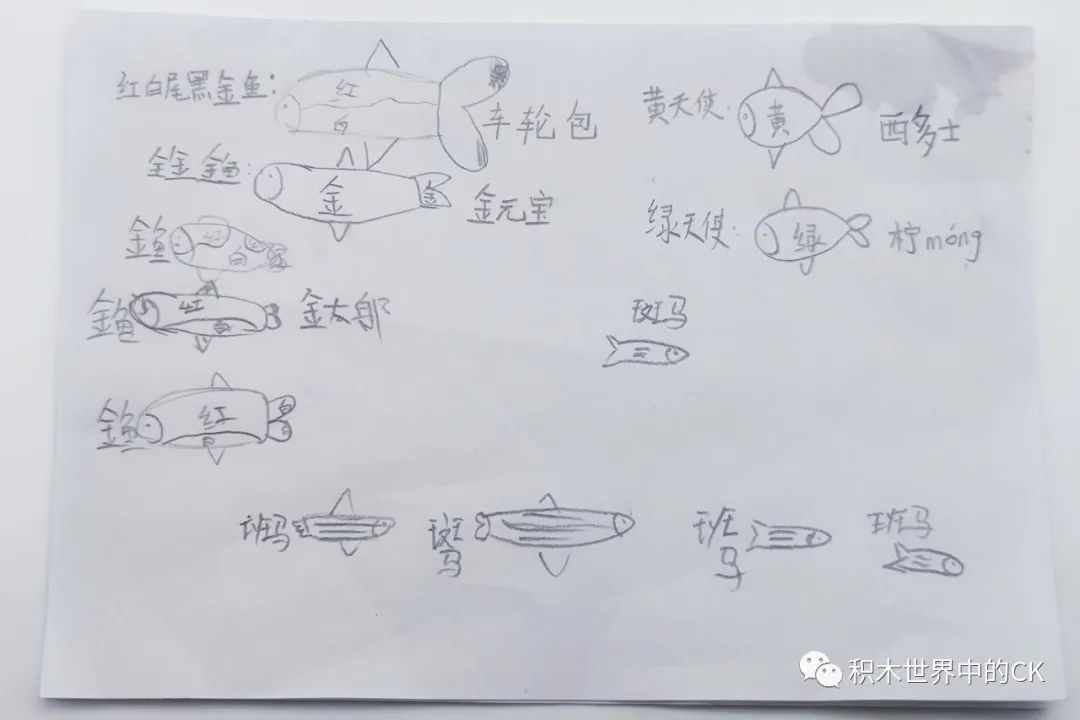 红白尾黑金鱼:
红
白
黑
车轮包
全金 金鱼:
金
金
金元宝
金鱼
红
白
金鱼
红
白
金太郎
金鱼
红
白
白
白
黄天使:
黄
西多士
绿天使:
绿
柠móng
斑马
班马
斑马
班马
班马
积木世界中的CK